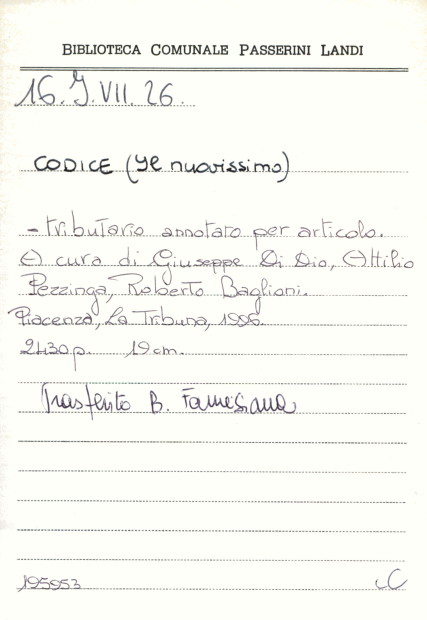 BIBLIOTECA COMUNALE PASSERINI LANDI
16. J. VII. 26.
CODICE (Il nuovissimo)
- tributario annotato per articolo.
A cura di Giuseppe Di Dio, Attilio
Pezzinga, Roberto Baglioni.
Piacenza, La Tribuna, 1996.
2430 p. 19 cm.
Trasferito B. Farnesiana
195953